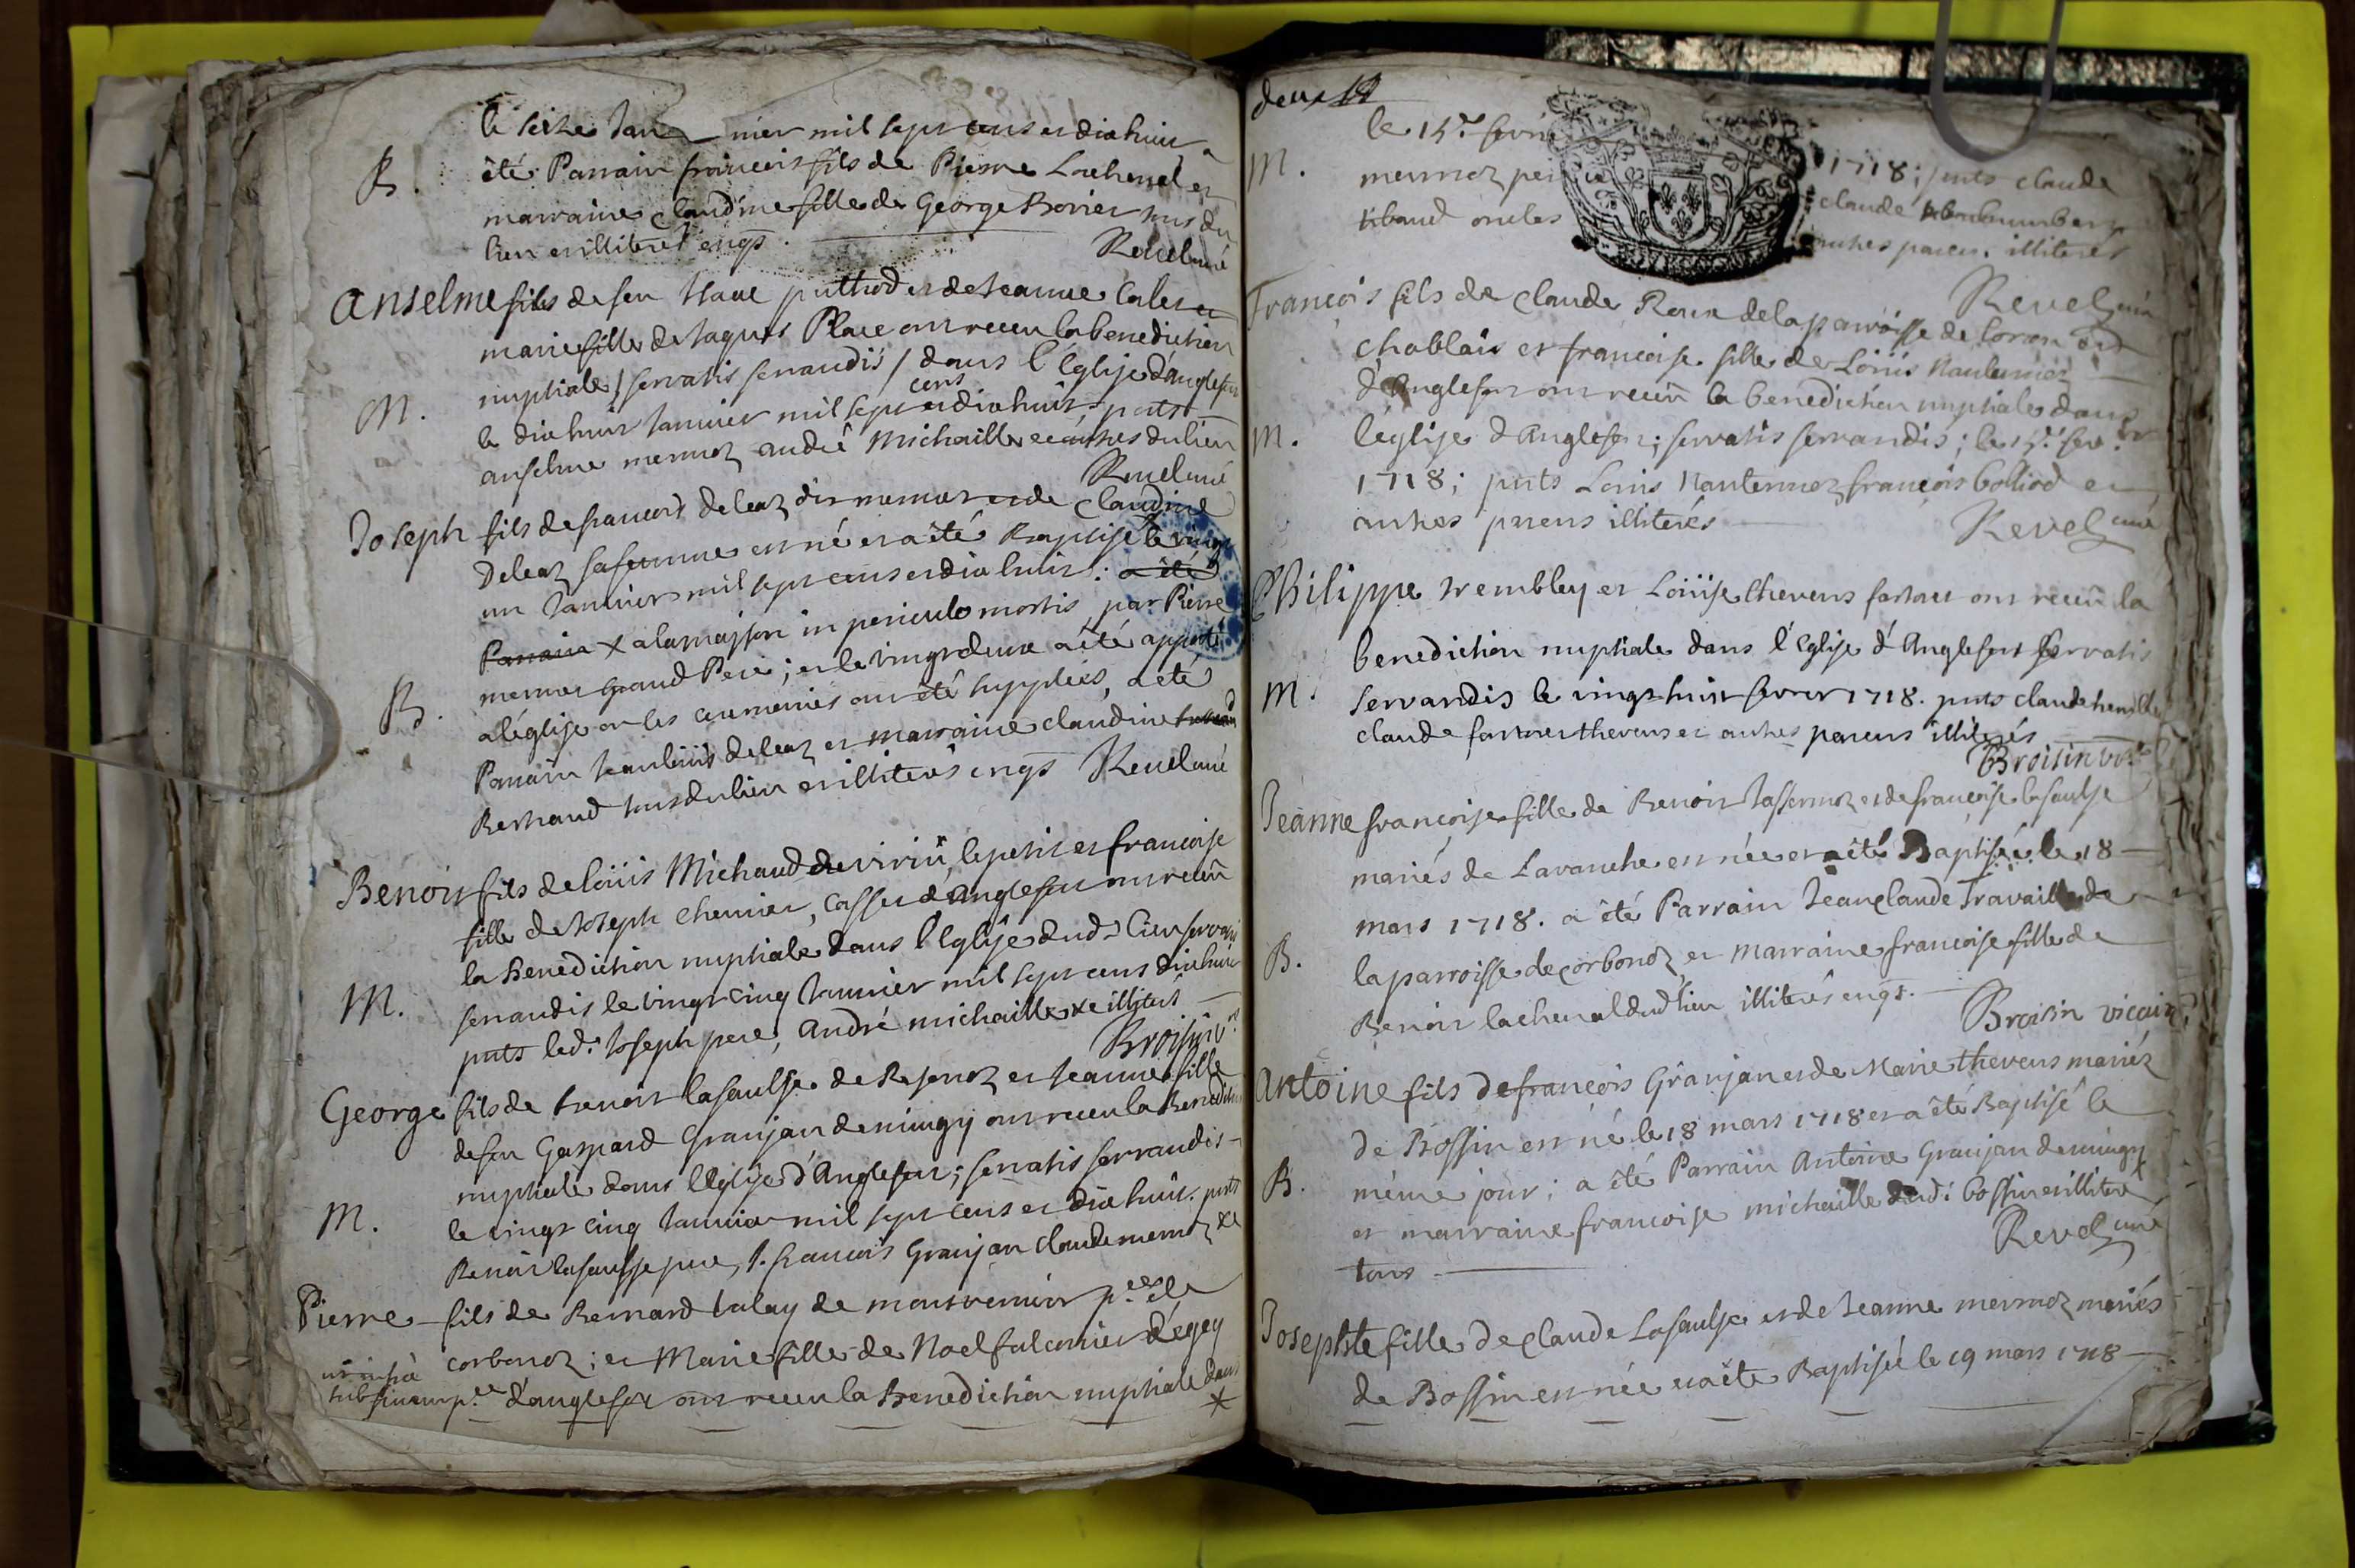 le seize Jan nier mil sept cens et dix huit a
B. été Parrain françois fils de Pierre Lachenal et
marraine Claudine fille de George Borrier tous du
lieu et illiterés enqs.
Revel curé
Anselme fils de feu Isaac puthod et de Jeanne Calet et
marie fille de Jaques Place ont receu la benediction
nuptiale / servatis servandis / dans l'Eglise d'anglefor
cens
M. le dix huit Janvier mil sept et dix huit; pnts
anselme mermoz andré Michaille et autres du lieu
Revel curé
Joseph fils de françois deleaz dit mermet et de Claudine
Deleaz sa femme est né et a été Baptisé le vingt
un Janvier mil sept cens et dix huit: a été
Parrain x a la maison in periculo mortis par Pierre
mermet grand Pere; et le vingt deux a été apporté
B. a l'église ou les ceremonies ont été suppliés, a été
Parrain Jean louis deleaz et marraine claudine
Bernard tous du lieu et illiterés enqs Revel curé
Benoit fils de loüis Michaud de viriu le petit et francoise
fille de Joseph Chevrier, Casset d'anglefort ont receu
la Benediction nuptiale dans l'Eglise dud. lieu servatis
M. servandis le vingt cinq Janvier mil sept cens dix huit
pnts led. Joseph pere, André michaille &c illiterés
Broisin vre
George fils de benoit lasausse de Rejenoz et Jeanne fille
de feu Gaspard Granjan de mingy ont receu la Benediction
nuptiale dans l'Eglise d'Anglefort; servatis servandis
M. le vingt cinq Janvier mil sept cens et dix huit. pnts
Benoit lasausse pere, J. francois Granjan claude mermoz &c
Pierre fils de Bernard talay de montvernier psse de
corbonoz; et Marie fille de Noel falconier d'egey
ut infra
sub finem p. d'anglefor ont receu la Benediction nuptiale dans
*
deux
le 15e. fevri 1718; pnts claude
M. mermoz pe claude
ribaud oncles autres paren. illiterés
Revel curé
François fils de claude Roux de la parroisse de loron en
chablais et françoise fille de Louis Nantermoz
d'Anglefor ont receu la benediction nuptiale dans
M. l'église d'Anglefor; servatis servandis; le 15e. fevr.
1718; pnts Louis Nantermoz françois bolliod et
autres parens illiterés
Revel curé
Philippe trembley et Loüise thevens fornier ont receu la
benediction nuptiale dans l'église d'Anglefort servatis
M. servandis le vingt huit fevrer 1718. pnts claude
claude fornier thevens et autres parens illiterés
Broisin vre
Jeanne françoise fille de Benoit Jassermoz et de françoise lasausse
mariés de Lavanche est née et a été Baptisée le 18
mars 1718. a été Parrain Jean Claude Travaille de
B. la parroisse de corbonoz et Marraine francoise fille de
Benoit lachenal dud lieu illiterés enqs.
Broisin vicaire
Antoine fils de françois Granjan et de Marie thevens mariéz
de Bossin est né le 18 mars 1718 et a été Baptisé le
B. même jour; a été Parrain Antoine Granjan de mingy
et marraine françoise michaille dud. bossin et illiterés
tous
Revel curé
Josephte fille de claude Lasausse et de Jeanne mermoz mariés
de Bossin est née et a été Baptisée le 19 mars 1718